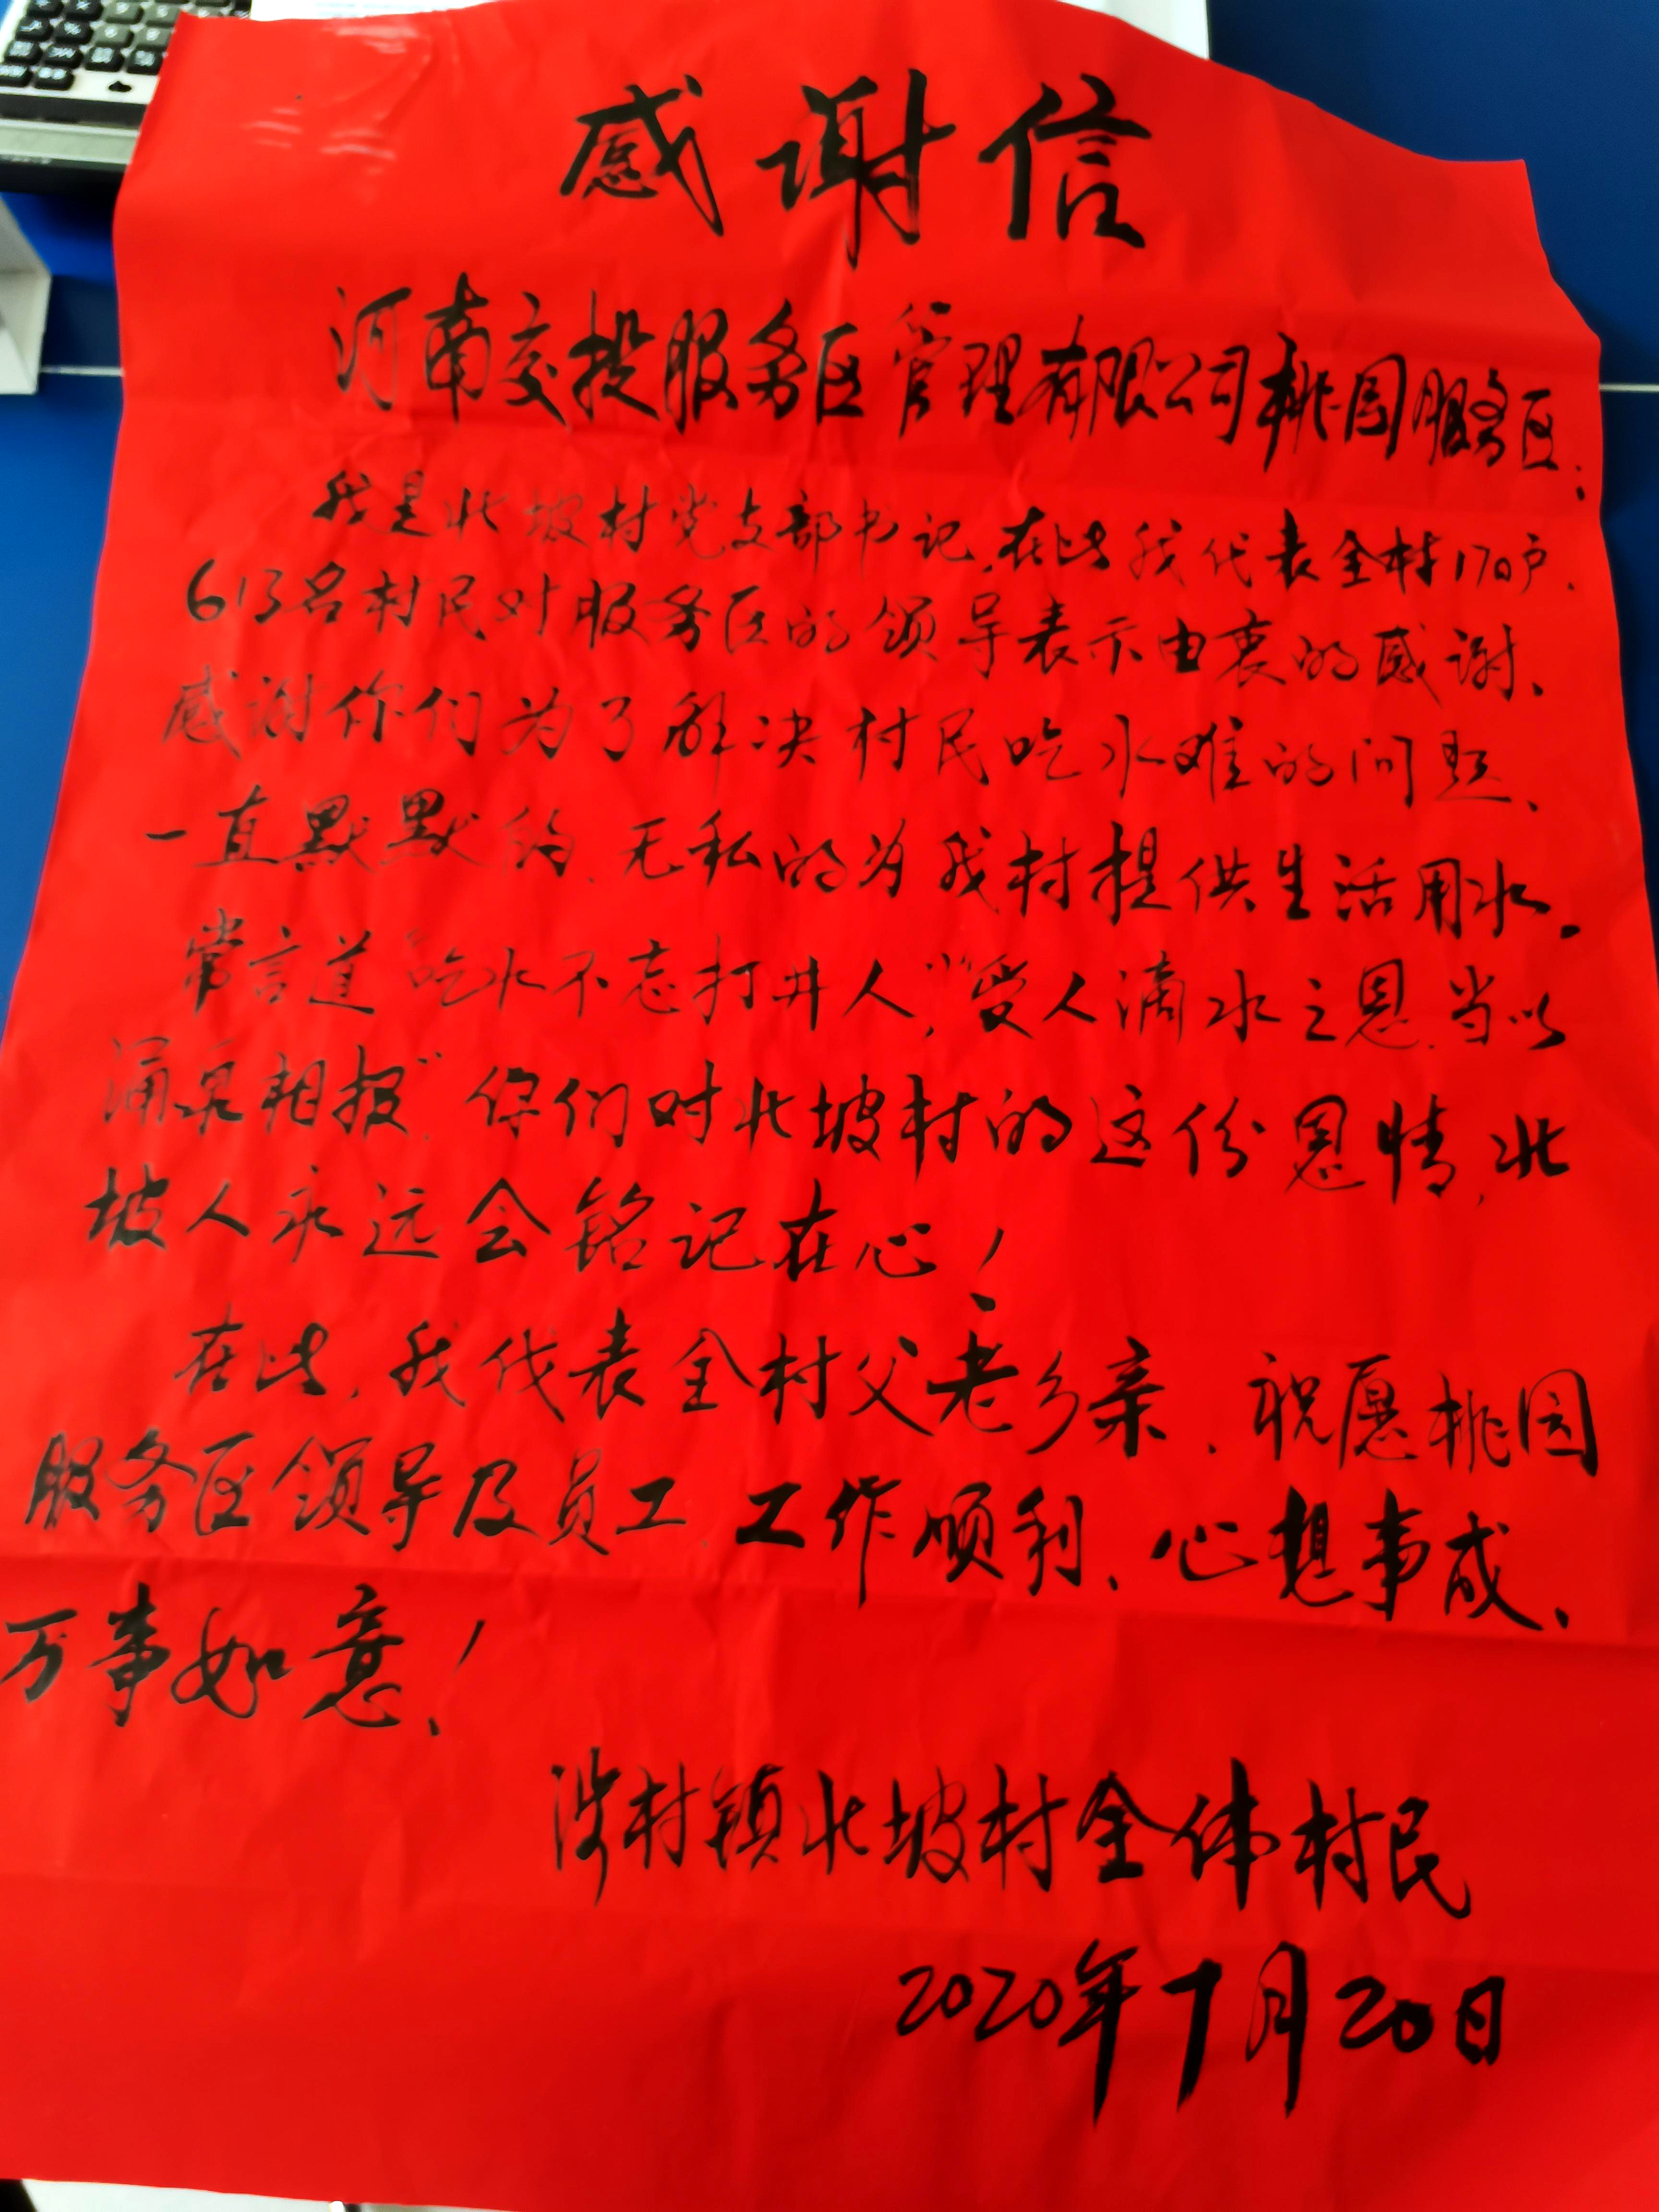 感谢信
河南交投服务区管理有限公司桃园服务区:
我是北坡村党支部书记,在此我代表全村170户.
613名村民对服务区的领导表示由衷的感谢、
感谢你们为了解决村民吃水难的问题、
一直默默的、无私的为我村提供生活用水。
常言道“吃水不忘打井人”,“受人滴水之恩,当以
涌泉相报”.你们对北坡村的这份恩情,北
坡人永远会铭记在心!
在此,我代表全村父老乡亲、祝愿桃园
服务区领导及员工、工作顺利、心想事成、
万事如意!
涉村镇北坡村全体村民
2020年7月20日